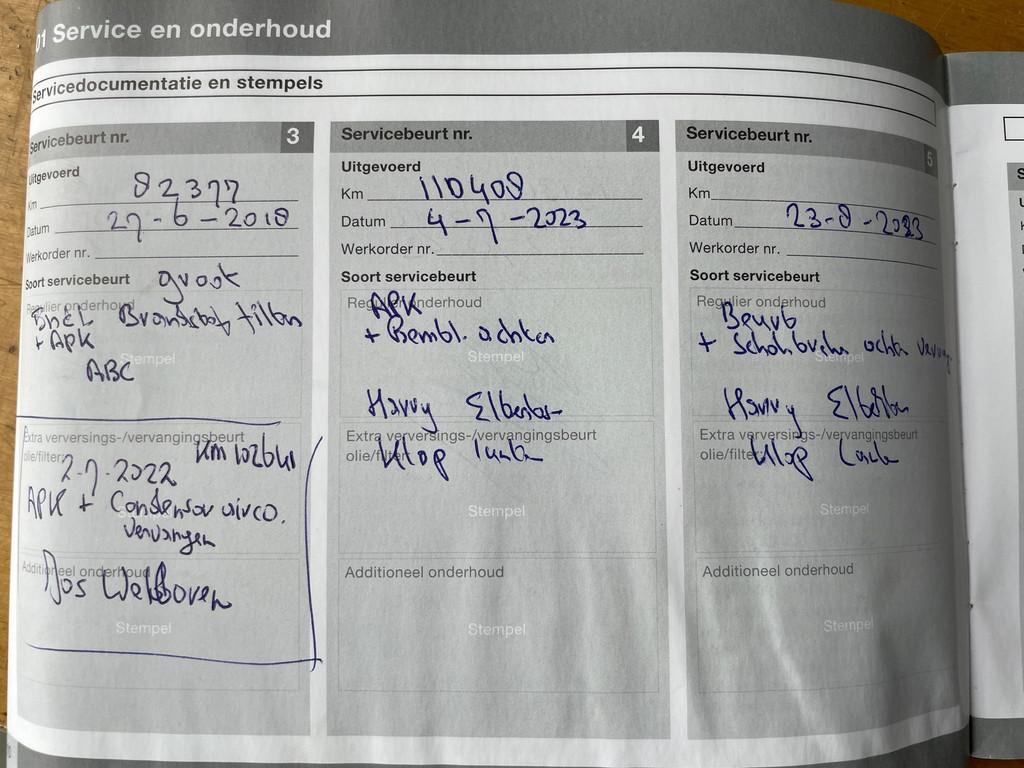 01 Service en onderhoud
Servicedocumentatie en stempels
Servicebeurt nr. 3
Uitgevoerd
Km 82377
Datum 27-6-2018
Werkorder nr.
Soort servicebeurt groot
Regulier onderhoud
Brandstof filter
+ APK
Stempel
ABC
Extra verversings-/vervangingsbeurt
olie/filter:
Km 102641
2-7-2022
APK + Condensor airco.
vervangen
Additioneel onderhoud
Jos Welboven
Stempel
Servicebeurt nr. 4
Uitgevoerd
Km 110408
Datum 4-7-2023
Werkorder nr.
Soort servicebeurt
Regulier onderhoud
APK
+ Rembl. achter
Stempel
Harry
Extra verversings-/vervangingsbeurt
olie/filter:
Klop
Stempel
Additioneel onderhoud
Stempel
Servicebeurt nr. 5
Uitgevoerd
Km
Datum 23-8-2023
Werkorder nr.
Soort servicebeurt
Regulier onderhoud
Beurt
+ achter
Stempel
Harry
Extra verversings-/vervangingsbeurt
olie/filter:
Klop
Stempel
Additioneel onderhoud
Stempel